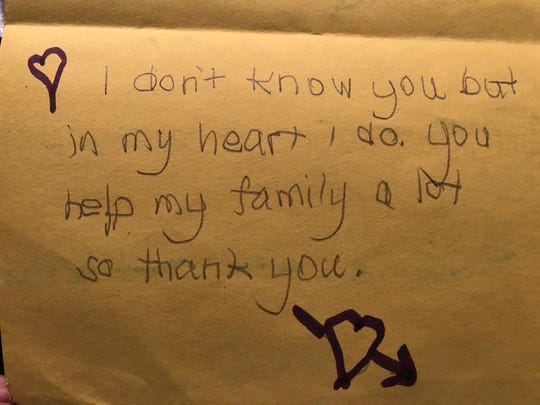 I don't know you but
in my heart i do. you
help my family a lot
so thank you.